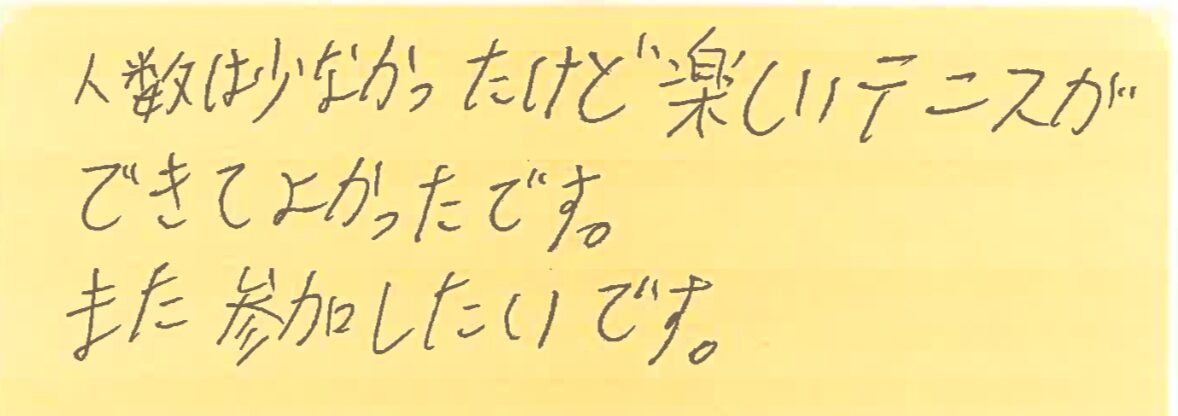 人数は少なかったけど楽しいテニスが
できてよかったです。
また参加したいです。